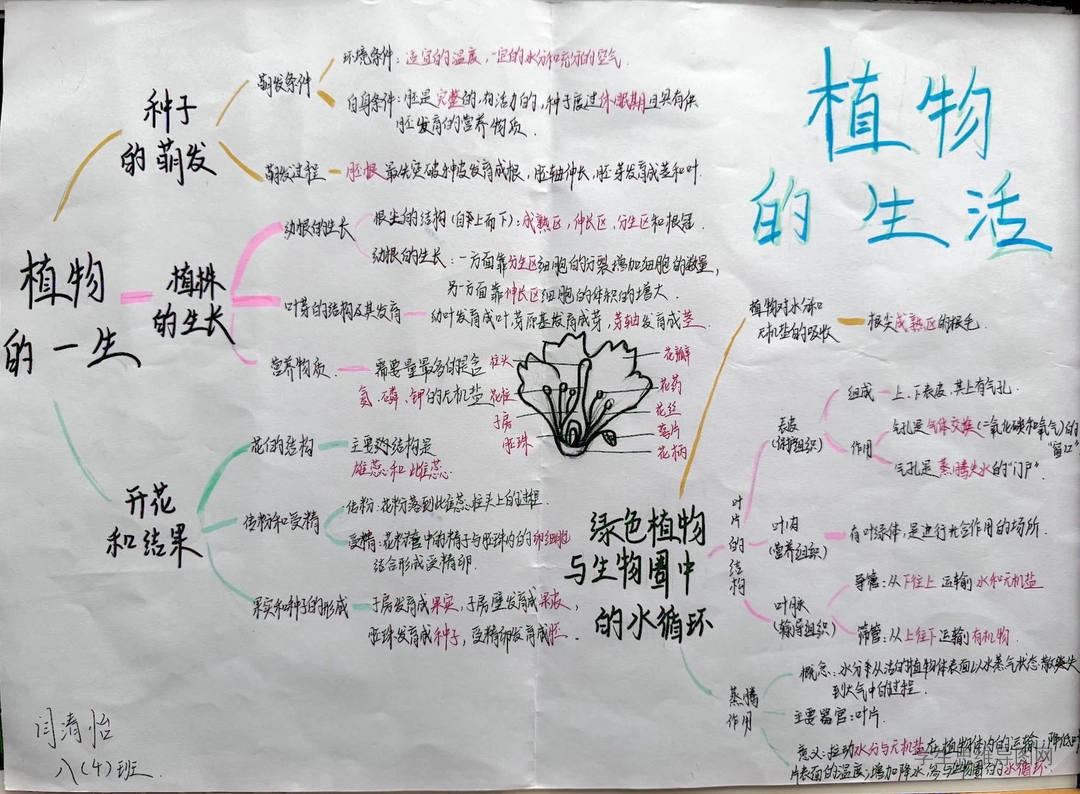 植物
的生活
植物
的一生
种子
的萌发
萌发条件
环境条件：适宜的温度，一定的水分和充分的空气．
自身条件：胚是完整的，有活力的，种子度过休眠期且具有供
胚发育的营养物质．
萌发过程
胚根最先突破种皮发育成根，胚轴伸长，胚芽发育成茎和叶．
植株
的生长
幼根的生长
根尖的结构(自上而下)：成熟区，伸长区，分生区和根冠．
幼根的生长：一方面靠分生区细胞的分裂增加细胞的数量，
另一方面靠伸长区细胞的体积的增大．
叶芽的结构及其发育
幼叶发育成叶，芽原基发育成芽，芽轴发育成茎．
营养物质
需要量最多的是含
氮、磷、钾的无机盐
开花
和结果
花的结构
主要的结构是
雄蕊和雌蕊．
传粉和受精
传粉：花粉落到雌蕊柱头上的过程．
受精：花粉管中的精子与胚珠内的卵细胞
结合形成受精卵．
果实和种子的形成
子房发育成果实，子房壁发育成果皮，
胚珠发育成种子，受精卵发育成胚．
柱头
花柱
子房
胚珠
花瓣
花药
花丝
萼片
花柄
绿色植物
与生物圈中
的水循环
植物对水分和
无机盐的吸收
根尖成熟区的根毛．
叶片的结构
表皮
(保护组织)
组成
上、下表皮，其上有气孔．
作用
气孔是气体交换(二氧化碳和氧气)的
“窗口”
气孔是蒸腾失水的“门户”．
叶肉
(营养组织)
有叶绿体，是进行光合作用的场所．
叶脉
(输导组织)
导管：从下往上运输水和无机盐
筛管：从上往下运输有机物．
蒸腾
作用
概念：水分从活的植物体表面以水蒸气状态散失
到大气中的过程．
主要器官：叶片．
意义：拉动水分与无机盐在植物体内的运输；降低叶
片表面的温度；增加降水，参与生物圈的水循环．
闫清怡
八(4)班
学生思维导图网